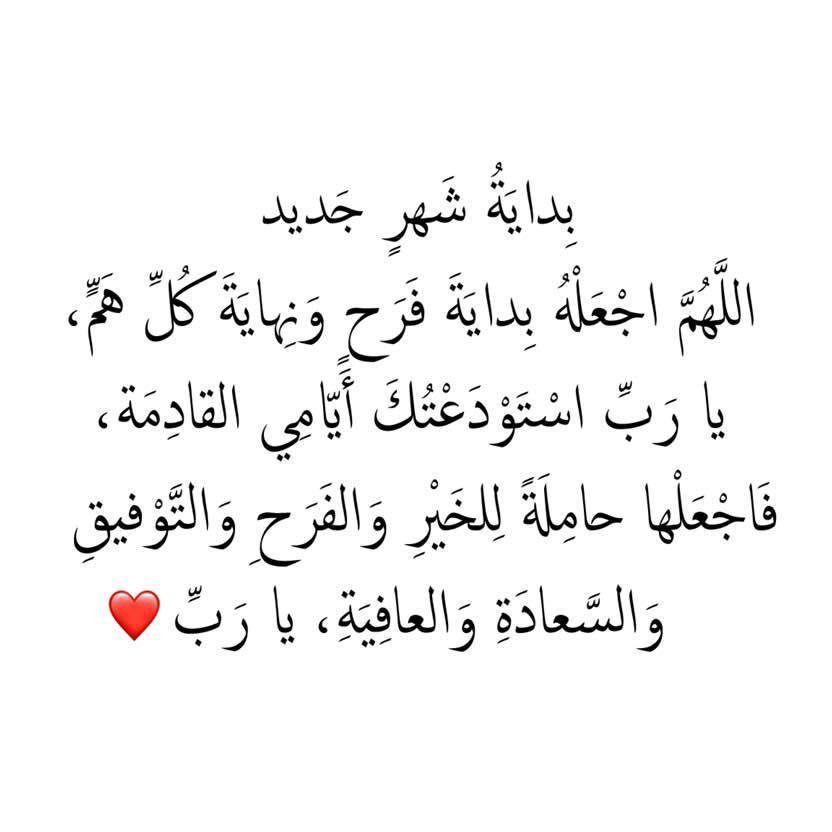 بِدايَةُ شَهرٍ جَديد
اللَّهُمَّ اجْعَلْهُ بِدايَةَ فَرَحٍ وَنِهايَةَ كُلِّ هَمٍّ،
يا رَبِّ اسْتَوْدَعْتُكَ أَيّامِي القادِمَة،
فَاجْعَلْها حامِلَةً لِلخَيْرِ وَالفَرَحِ وَالتَّوْفيقِ
وَالسَّعادَةِ وَالعافِيَةِ، يا رَبِّ ❤️